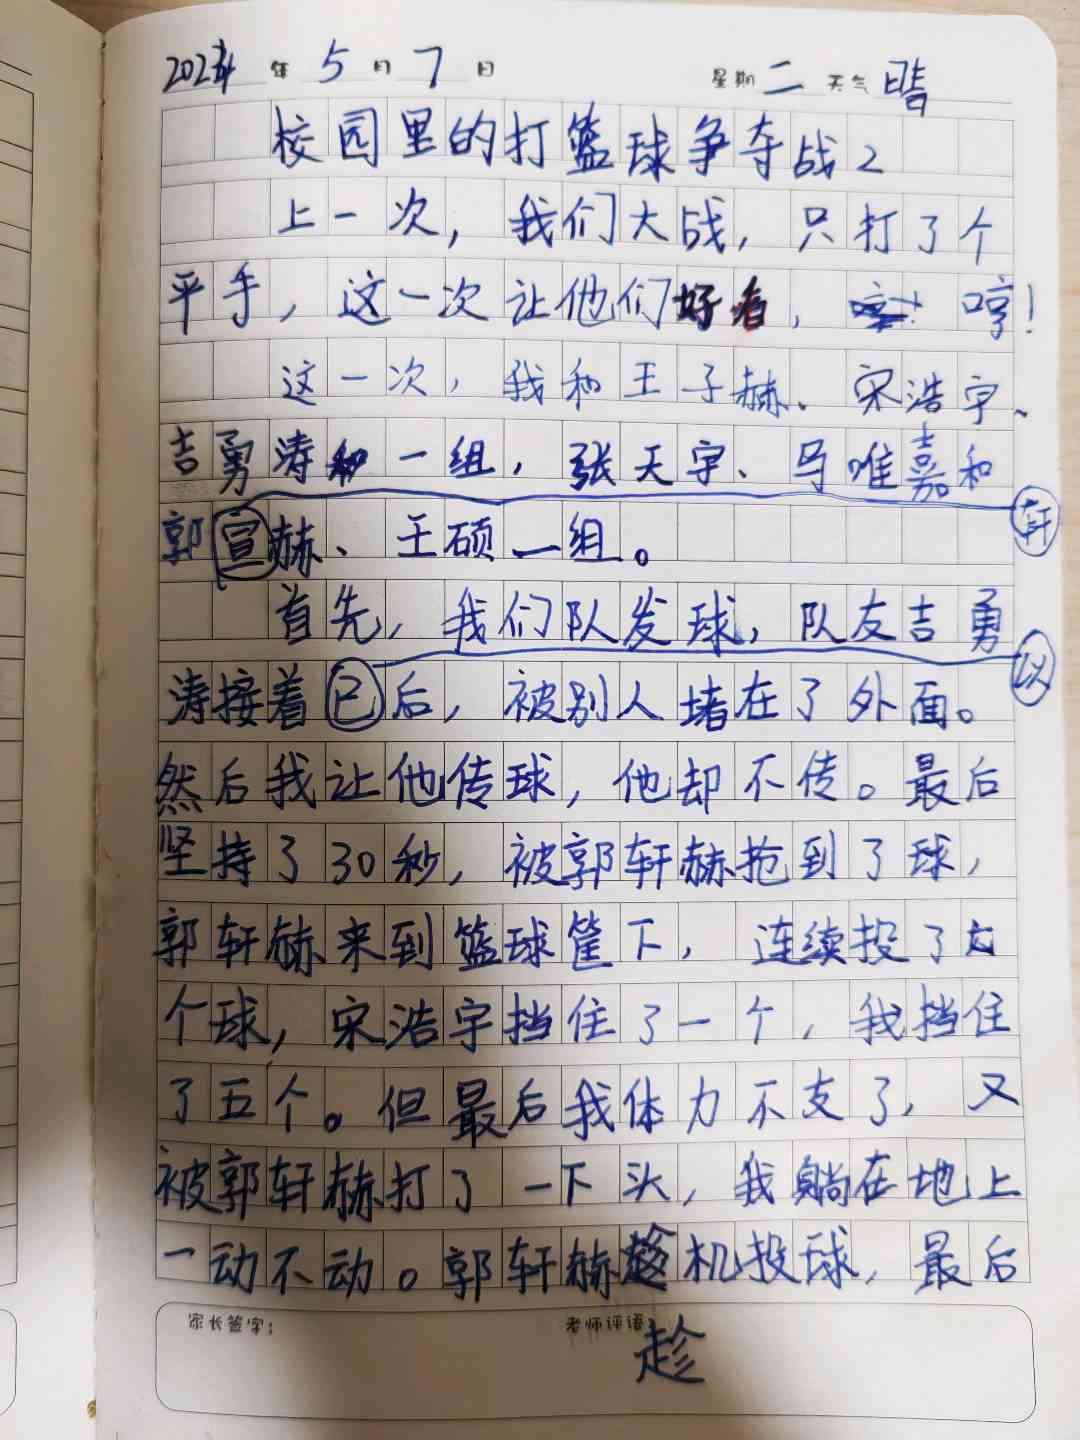 2024年5月7日 星期二 天气晴
校园里的打篮球争夺战2
上一次，我们大战，只打了个
平手，这一次让他们好看，哼！
这一次，我和王子赫、宋浩宇、
吉勇涛和一组，张天宇、马唯嘉和
郭宣赫、王硕一组。
轩
首先，我们队发球，队友吉勇
涛接着已后，被别人堵在了外面。
以
然后我让他传球，他却不传。最后
坚持了30秒，被郭轩赫抢到了球，
郭轩赫来到篮球筐下，连续投了六
个球，宋浩宇挡住了一个，我挡住
了五个。但最后我体力不支了，又
被郭轩赫打了一下头，我躺在地上
一动不动。郭轩赫趁机投球，最后
家长签字： 老师评语
趁